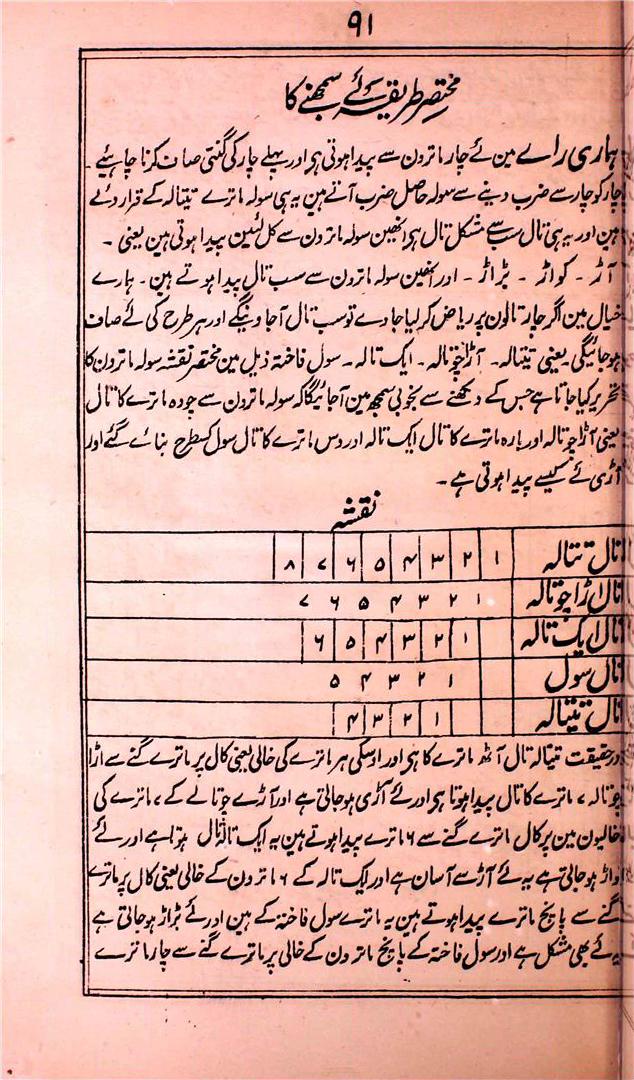 ۹۱
مختصر طریقہ لَے سمجھنے کا
ہماری راے مین لَے چار ماترون سے پیدا ہوتی ہی اور پہلے چار کی گنتی صاف کرنا چاہیے۔
چار کو چار سے ضرب دینے سے سولہ حاصل ضرب آتے ہین یہ ہی سولہ ماترے تیتالہ کے قرار دئے
ہین اور یہ ہی تال سب سے مشکل تال ہی انھین سولہ ماترون سے کل لئین پیدا ہوتی ہین یعنی۔
آڑ۔ کواڑ۔ بڑاڑ۔ اور انھین سولہ ماترون سے سب تال پیدا ہوتے ہین۔ ہارے
خیال مین اگر چار تالون پر ریاض کر لیا جاوے تو سب تال آجاوینگے اور ہر طرح کی لَے صاف
ہوجائیگی۔ یعنی تیتالہ۔ آڑا چوتالہ۔ ایک تالہ۔ سول فاختہ ذیل مین مختصر نقشہ سولہ ماترون کا
تحریر کیا جاتا ہے جس کے دیکھنے سے بخوبی سمجھ مین آجائیگا کہ سولہ ماترون سے چودہ ماترے کا تال
یعنی آڑا چوتالہ اور بارہ ماترے کا تال ایک تالہ اور دس ماترے کا تال سول کسطرح بنائے گئے اور
آڑی لَے کیسے پیدا ہوتی ہے۔
نقشہ
تال تیتالہ ۱ ۲ ۳ ۴ ۵ ۶ ۷ ۸
تال اڑا چوتالہ ۱ ۲ ۳ ۴ ۵ ۶ ۷
تال ایک تالہ ۱ ۲ ۳ ۴ ۵ ۶
تال سول ۱ ۲ ۳ ۴ ۵
تال تیتالہ ۱ ۲ ۳ ۴
در حقیقت تیتالہ تال آٹھ ماترے کا ہی اور اوسکی ہر ماترے کی خالی یعنی کال پر ماترے گننے سے اڑا
چوتالہ ۷ ماترے کا تال پیدا ہوتا ہی اور لَے آڑی ہوجاتی ہے اور آڑے چوتالے کے ۷ ماترے کی
خالیون مین پر کال ماترے گننے سے ۶ ماترے پیدا ہوتے ہین یہ ایک تالہ تال ہوتا ہے اور لَے
کواڑ ہوجاتی ہے یہ لَے آڑ سے آسان ہے اور ایک تالہ کے ۶ ماترون کے خالی یعنی کال پر ماترے
گننے سے پانچ ماترے پیدا ہوتے ہین یہ ماترے سول فاختہ کے ہین اور لَے بڑاڑ ہوجاتی ہے
یہ لَے بھی مشکل ہے اور سول فاختہ کے پانچ ماترون کے خالی پر ماترے گننے سے چار ماترے